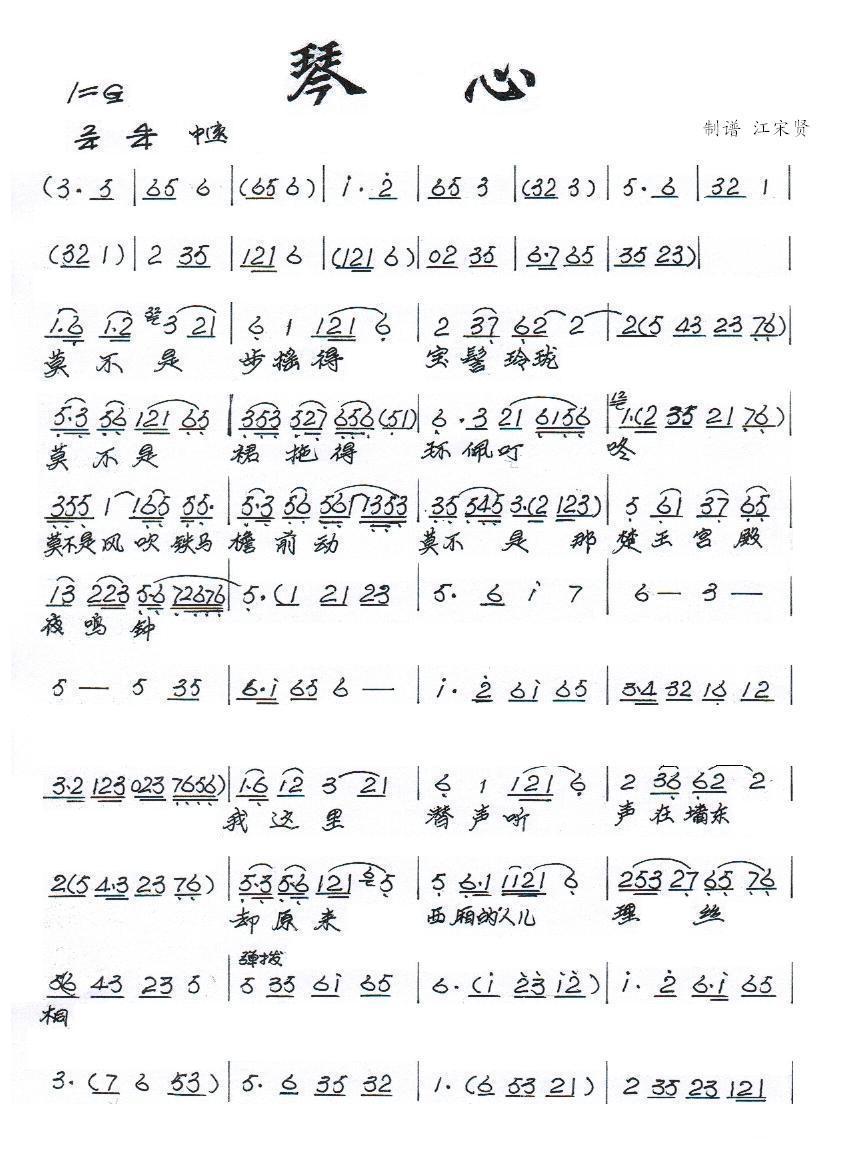 琴心
1=G
2/4 4/4 中速
制谱 江宋贤
(3· 5 | 65 6 | (65 6) | i· 2 | 65 3 | (32 3) | 5· 6 | 32 1 |
(32 1) | 2 35 | 121 6 | (121 6) | 02 35 | 6·7 65 | 35 23) |
1·6 1·2 3 21 | 6 1 121 6 | 2 37 62 2 | 2(5 43 23 76) |
莫不是 步摇得 宝髻玲珑
5·3 56 121 65 | 353 527 656 (51) | 6· 3 21 6156 | 1·(2 35 21 76) |
莫不是 裙拖得 环佩叮 咚
355 1 165 55· | 5·3 56 561 1353 | 35 545 3·(2 123) | 5 61 37 65 |
莫不是风吹铁马 檐前动 莫不是那 楚王宫殿
13 223 5·6 72676 | 5·(1 21 23 | 5· 6 i 7 | 6 — 3 — |
夜鸣钟
5 — 5 35 | 6·i 65 6 — | i· 2 6i 65 | 3·4 32 16 12 |
3·2 123 023 7656) | 1·6 12 3 21 | 6 1 121 6 | 2 36 62 2 |
我这里 替声听 声在墙东
2(5 4·3 23 76) | 5·3 5·6 121 5 | 5 6·1 1121 6 | 253 27 65 76 |
却原来 西厢的人儿 理丝
弹拨
56 43 23 5 | 5 35 6i 65 | 6·(i 23 i2) | i· 2 6·i 65 |
桐
3·(7 6 53) | 5· 6 35 32 | 1·(6 53 21) | 2 35 23 121 |